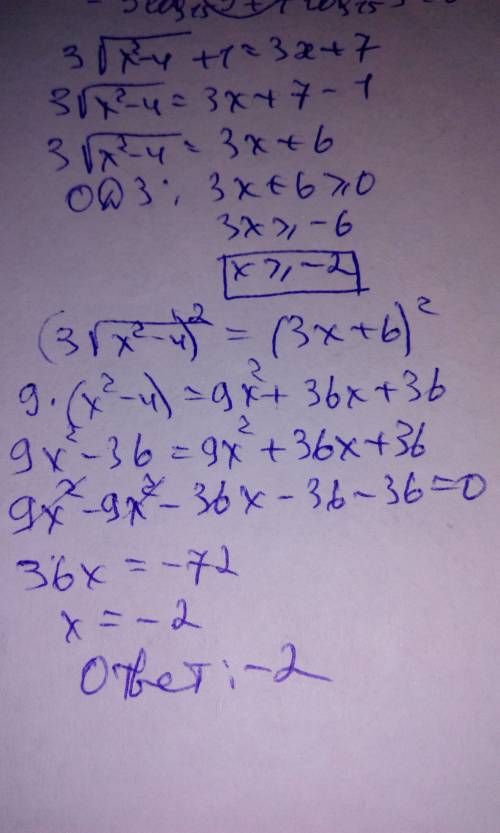 3√(x²-4) + 1 = 3x + 7
3√(x²-4) = 3x + 7 - 1
3√(x²-4) = 3x + 6
ОДЗ: 3x + 6 ⩾ 0
3x ⩾ -6
x ⩾ -2
(3√(x²-4))² = (3x+6)²
9·(x²-4) = 9x² + 36x + 36
9x² - 36 = 9x² + 36x + 36
9x² - 9x² - 36x - 36 - 36 = 0
36x = -72
x = -2
Ответ: -2